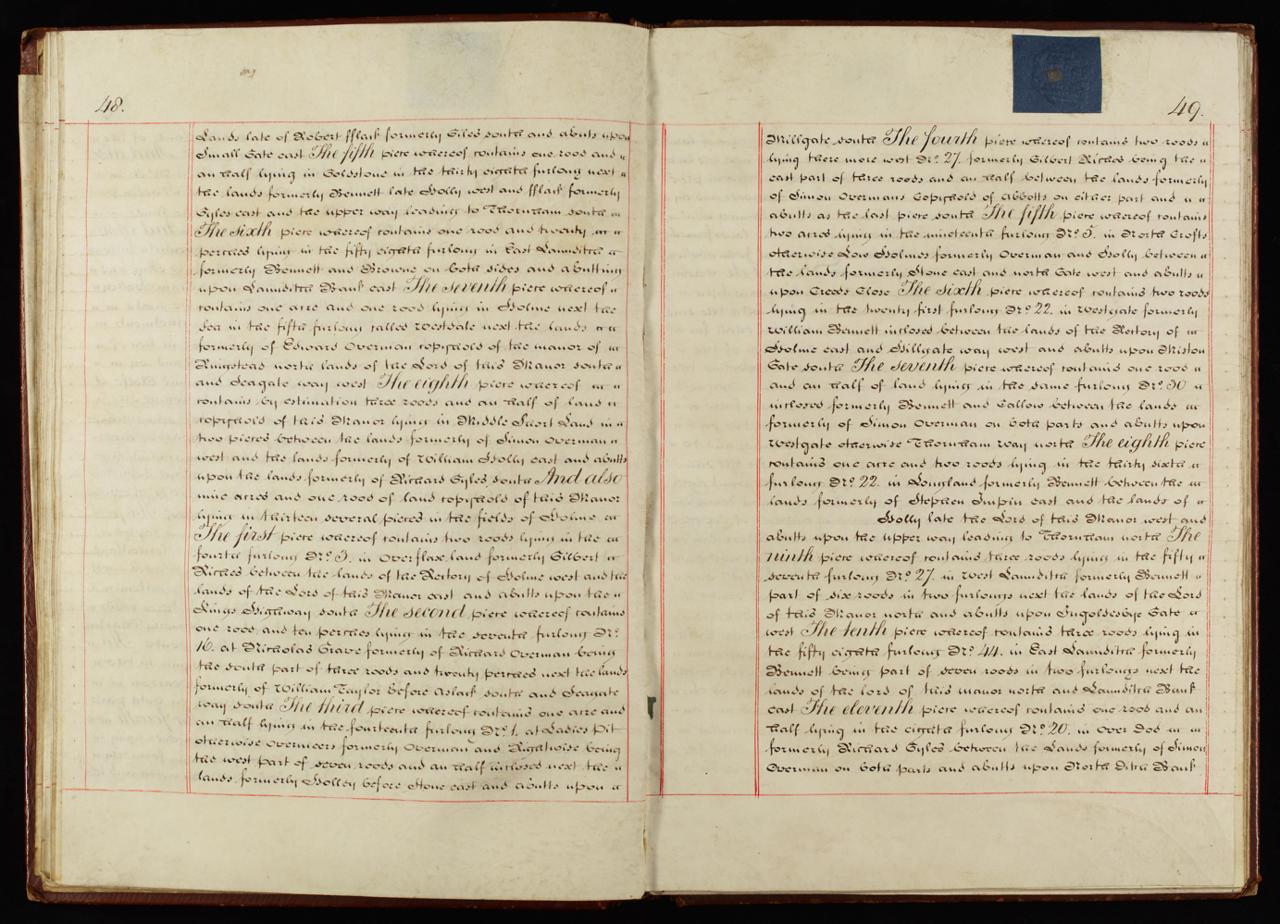 48.
Lands late of Robert fflask formerly Giles south and abutts upon
Small Gate east The fifth piece whereof contains one rood and
an half lying in Goldstone in the thirty eighth furlong next
the lands formerly Bennett late Holly west and fflask formerly
Gyles east and the upper way leading to Thornham south
The sixth piece whereof contains one rood and twenty
perches lying in the fifty eighth furlong in East Launditch
formerly Bennett and Browne on both sides and abutting
upon Launditch Bank east The seventh piece whereof
contains one acre and one rood lying in Holme next the
Sea in the fifth furlong called Westdale next the lands
formerly of Edward Overman copyhold of the manor of
Ringstead north lands of the Lord of this Manor south
and Seagate way west The eighth piece whereof
contains by estimation three roods and an half of land
copyhold of this Manor lying in Middle Short Land in
two pieces between the lands formerly of Simon Overman
west and the lands formerly of William Holly east and abutts
upon the lands formerly of Richard Gyles south And also
nine acres and one rood of land copyhold of this Manor
lying in thirteen several pieces in the fields of Holme
The first piece whereof contains two roods lying in the
fourth furlong No. 3. in Overflax land formerly Gilbert
Riches between the lands of the Rectory of Holme west and the
lands of the Lord of this Manor east and abutts upon the
Kings Highway south The second piece whereof contains
one rood and ten perches lying in the seventh furlong No.
16. at Nicholas Grave formerly of Richard Overman being
the south part of three roods and twenty perches next the lands
formerly of William Taylor before Aslack south and Seagate
way south The third piece whereof contains one acre and
an half lying in the fourteenth furlong No. 1. at Ladies Pit
otherwise Overmeers formerly Overman and Rightwise being
the west part of seven roods and an half inclosed next the
lands formerly Holley before Stone east and abutts upon a
49.
Millgate south The fourth piece whereof contains two roods
lying there more west No. 27. formerly Gilbert Riches being the
east part of three roods and an half between the lands formerly
of Simon Overmans Copyhold of abbotts on either part and
abutts as the last piece south The fifth piece whereof contains
two acres lying in the nineteenth furlong No. 5. in North Crofts
otherwise Low Holmes formerly Overman and Holly between
the lands formerly Stone east and north Gate west and abutts
upon Creeds Close The sixth piece whereof contains two roods
lying in the twenty first furlong No. 22. in Westgate formerly
William Bennett inclosed between the lands of the Rectory of
Holme east and Hillgate way west and abutts upon
Gate south The seventh piece whereof contains one rood
and an half of land lying in the same furlong No. 30
inclosed formerly Bennett and Callow between the lands
formerly of Simon Overman on both parts and abutts upon
Westgate otherwise Thornham Way north The eighth piece
contains one acre and two roods lying in the thirty sixth
furlong No. 22. in Longland formerly Bennett between the
lands formerly of Stephen east and the lands of
Holly late the Lord of this Manor west and
abutts upon the upper way leading to Thornham north The
ninth piece whereof contains three roods lying in the fifty
seventh furlong No. 27. in West Launditch formerly Bennett
part of six roods in two furlongs next the lands of the Lord
of this Manor north and abutts upon Ingoldesbye Gate
west The tenth piece whereof contains three roods lying in
the fifty eighth furlong No. 44. in East Launditch formerly
Bennett being part of seven roods in two furlongs next the
lands of the lord of this manor north and Launditch Bank
east The eleventh piece whereof contains one rood and an
half lying in the eighth furlong No. 20. in Over
formerly Richard Gyles between the Lands formerly of Simon
Overman on both parts and abutts upon North Ditch Bank